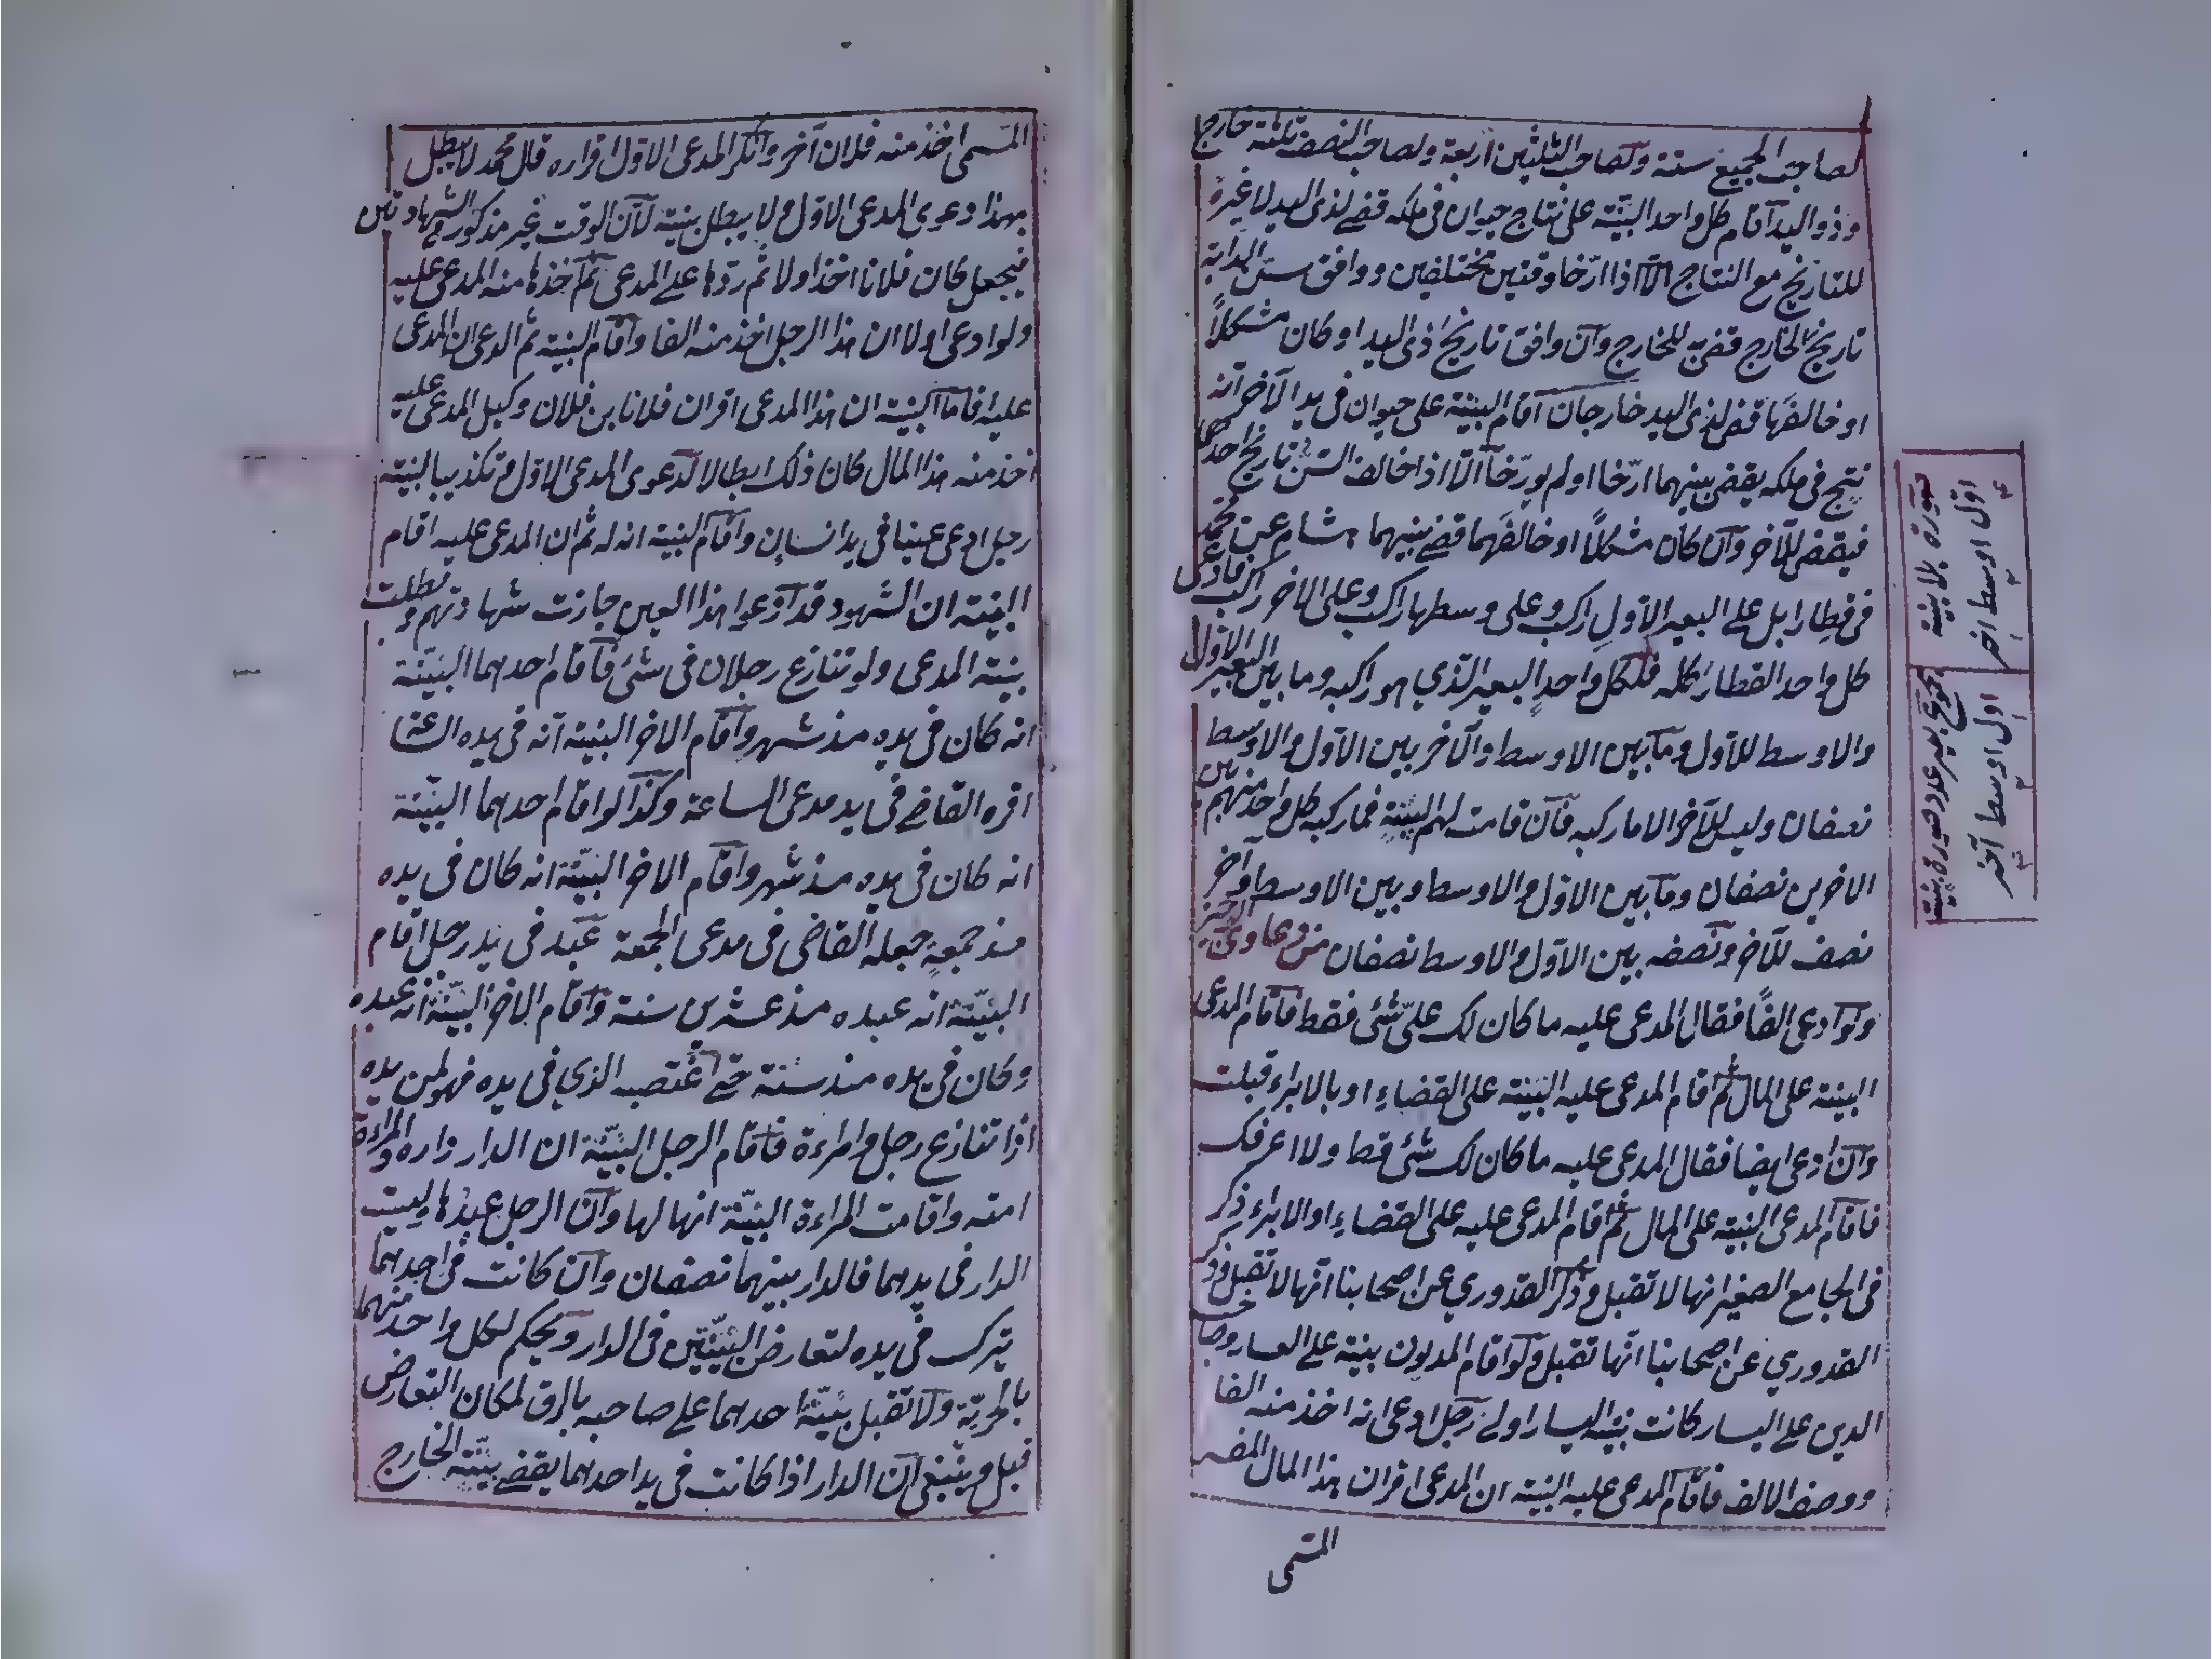 لصاحب الجميع ستة ولصاحب الثلثين اربعة ولصاحب النصف ثلثة خارج
وذو اليد اقام كل واحد البينة على نتاج حيوان فى ملكه قضے لذى اليد لا عبرة
للتاريخ مع النتاج الّا اذا ارّخا وقتين مختلفين ووافق سنّ الدابة
تاريخ الخارج قضى للخارج وان وافق تاريخ ذى اليد او كان مشكلاً
او خالفها قضى لذى اليد خارجان اقام البينة على حيوان فى يد الآخر انه
نتج فى ملكه يقضى بينهما ارّخا او لم يورّخا الّا اذا خالف السّن تاريخ احدهما
فيقضى للآخر وان كان مشكلاً او خالفهما قضے بينهما هشام عن محمد
فى قطار ابل علے البعير الاول راكب وعلى وسطها راكب وعلى الاخر راكب فادعى
كل واحد القطار كله فلكل واحد البعير الذي هو راكبه وما بين البعير الاول
والاوسط للاول وما بين الاوسط والآخر بين الاول والاوسط
نصفان وليس للآخر الا ما ركبه فان قامت لهم البينة فما ركبه كل واحد منهم بين
الاخرين نصفان وما بين الاول والاوسط وبين الاوسط وآخر
نصف للآخر ونصفه بين الاول والاوسط نصفان من دعاوى
ولو ادعى الفًا فقال المدعى عليه ما كان لك علىّ شئ فقط فاقام المدعى
البينة على المال ثم اقام المدعى عليه البينة على القضاء او بالابراء قبلت
وان ادعى ايضا فقال المدعى عليه ما كان لك شئ قط ولا اعرفك
فاقام المدعى البينة على المال ثم اقام المدعى عليه على القضاء او الابراء ذكر
فى الجامع الصغير انها لا تقبل وذكر القدوري عن اصحابنا انها لا تقبل وذكر
القدوري عن اصحابنا انّها تقبل ولو اقام المديون بينة علے العسار وصاحب
الدين علے اليسار كانت بينة اليسار اولے رجل ادعى انه اخذ منه الفا
ووصف الالف فاقام المدعى عليه البينة ان المدعى اقر ان هذا المال
المسمى
صورة بلا بينة
اوّل اوسط اخر
اول اوسط آخر
المسمى اخذ منه فلان آخر وانكر المدعى الاول اقراره قال محمد لا يبطل
بهذا دعوى المدعى الاول ولا يبطل بينته لان الوقت غير مذكور فى الشهادتين
فيجعل كان فلانا اخذ اولا ثم ردّها علے المدعى ثم اخذها منه المدعى عليه
ولو ادعى اولا ان هذا الرجل اخذ منه الفا واقام البينة ثم ادعى ان المدعى
عليه اقام البينة ان هذا المدعى اقر ان فلانا بن فلان وكيل المدعى عليه
اخذ منه هذا المال كان ذلك ابطالا لدعوى المدعى الاول وتكذيبا لبينته
رجل ادعى عينا فى يد انسان واقام البينة انه له ثم ان المدعى عليه اقام
البينة ان الشهود قد ادعوا هذا العين جازت شهادتهم وبطلت
بينة المدعى ولو تنازع رجلان فى شئ فاقام احدهما البينة
انه كان فى يده منذ شهر واقام الاخر البينة انه فى يده الساعة
اقره القاضے فى يد مدعى الساعة وكذا لو اقام احدهما البينة
انه كان فى يده منذ شهر واقام الاخر البينة انه كان فى يده
منذ جمعة جعله القاضى فى مدعى الجمعة عبد فى يد رجل اقام
البينة انه عبده منذ عشرين سنة واقام الاخر البينة انه عبده
وكان فى يده منذ سنة حتے اغتصبه الذي فى يده فهو لمن يده
اذا تنازع رجل وامراءة فاقام الرجل البينة ان الدار داره والمراءة
امته واقامت المراءة البينة انها لها وان الرجل عبدها وليست
الدار فى يدهما فالدار بينهما نصفان وان كانت فى احدهما
يترك فى يده لتعارض البينتين فى الدار ويحكم لكل واحد منهما
بالحرية ولا تقبل بينة احدهما علے صاحبه بالرق لمكان التعارض
قيل وينبغى ان الدار اذا كانت فى يد احدهما يقضے ببينة الخارج